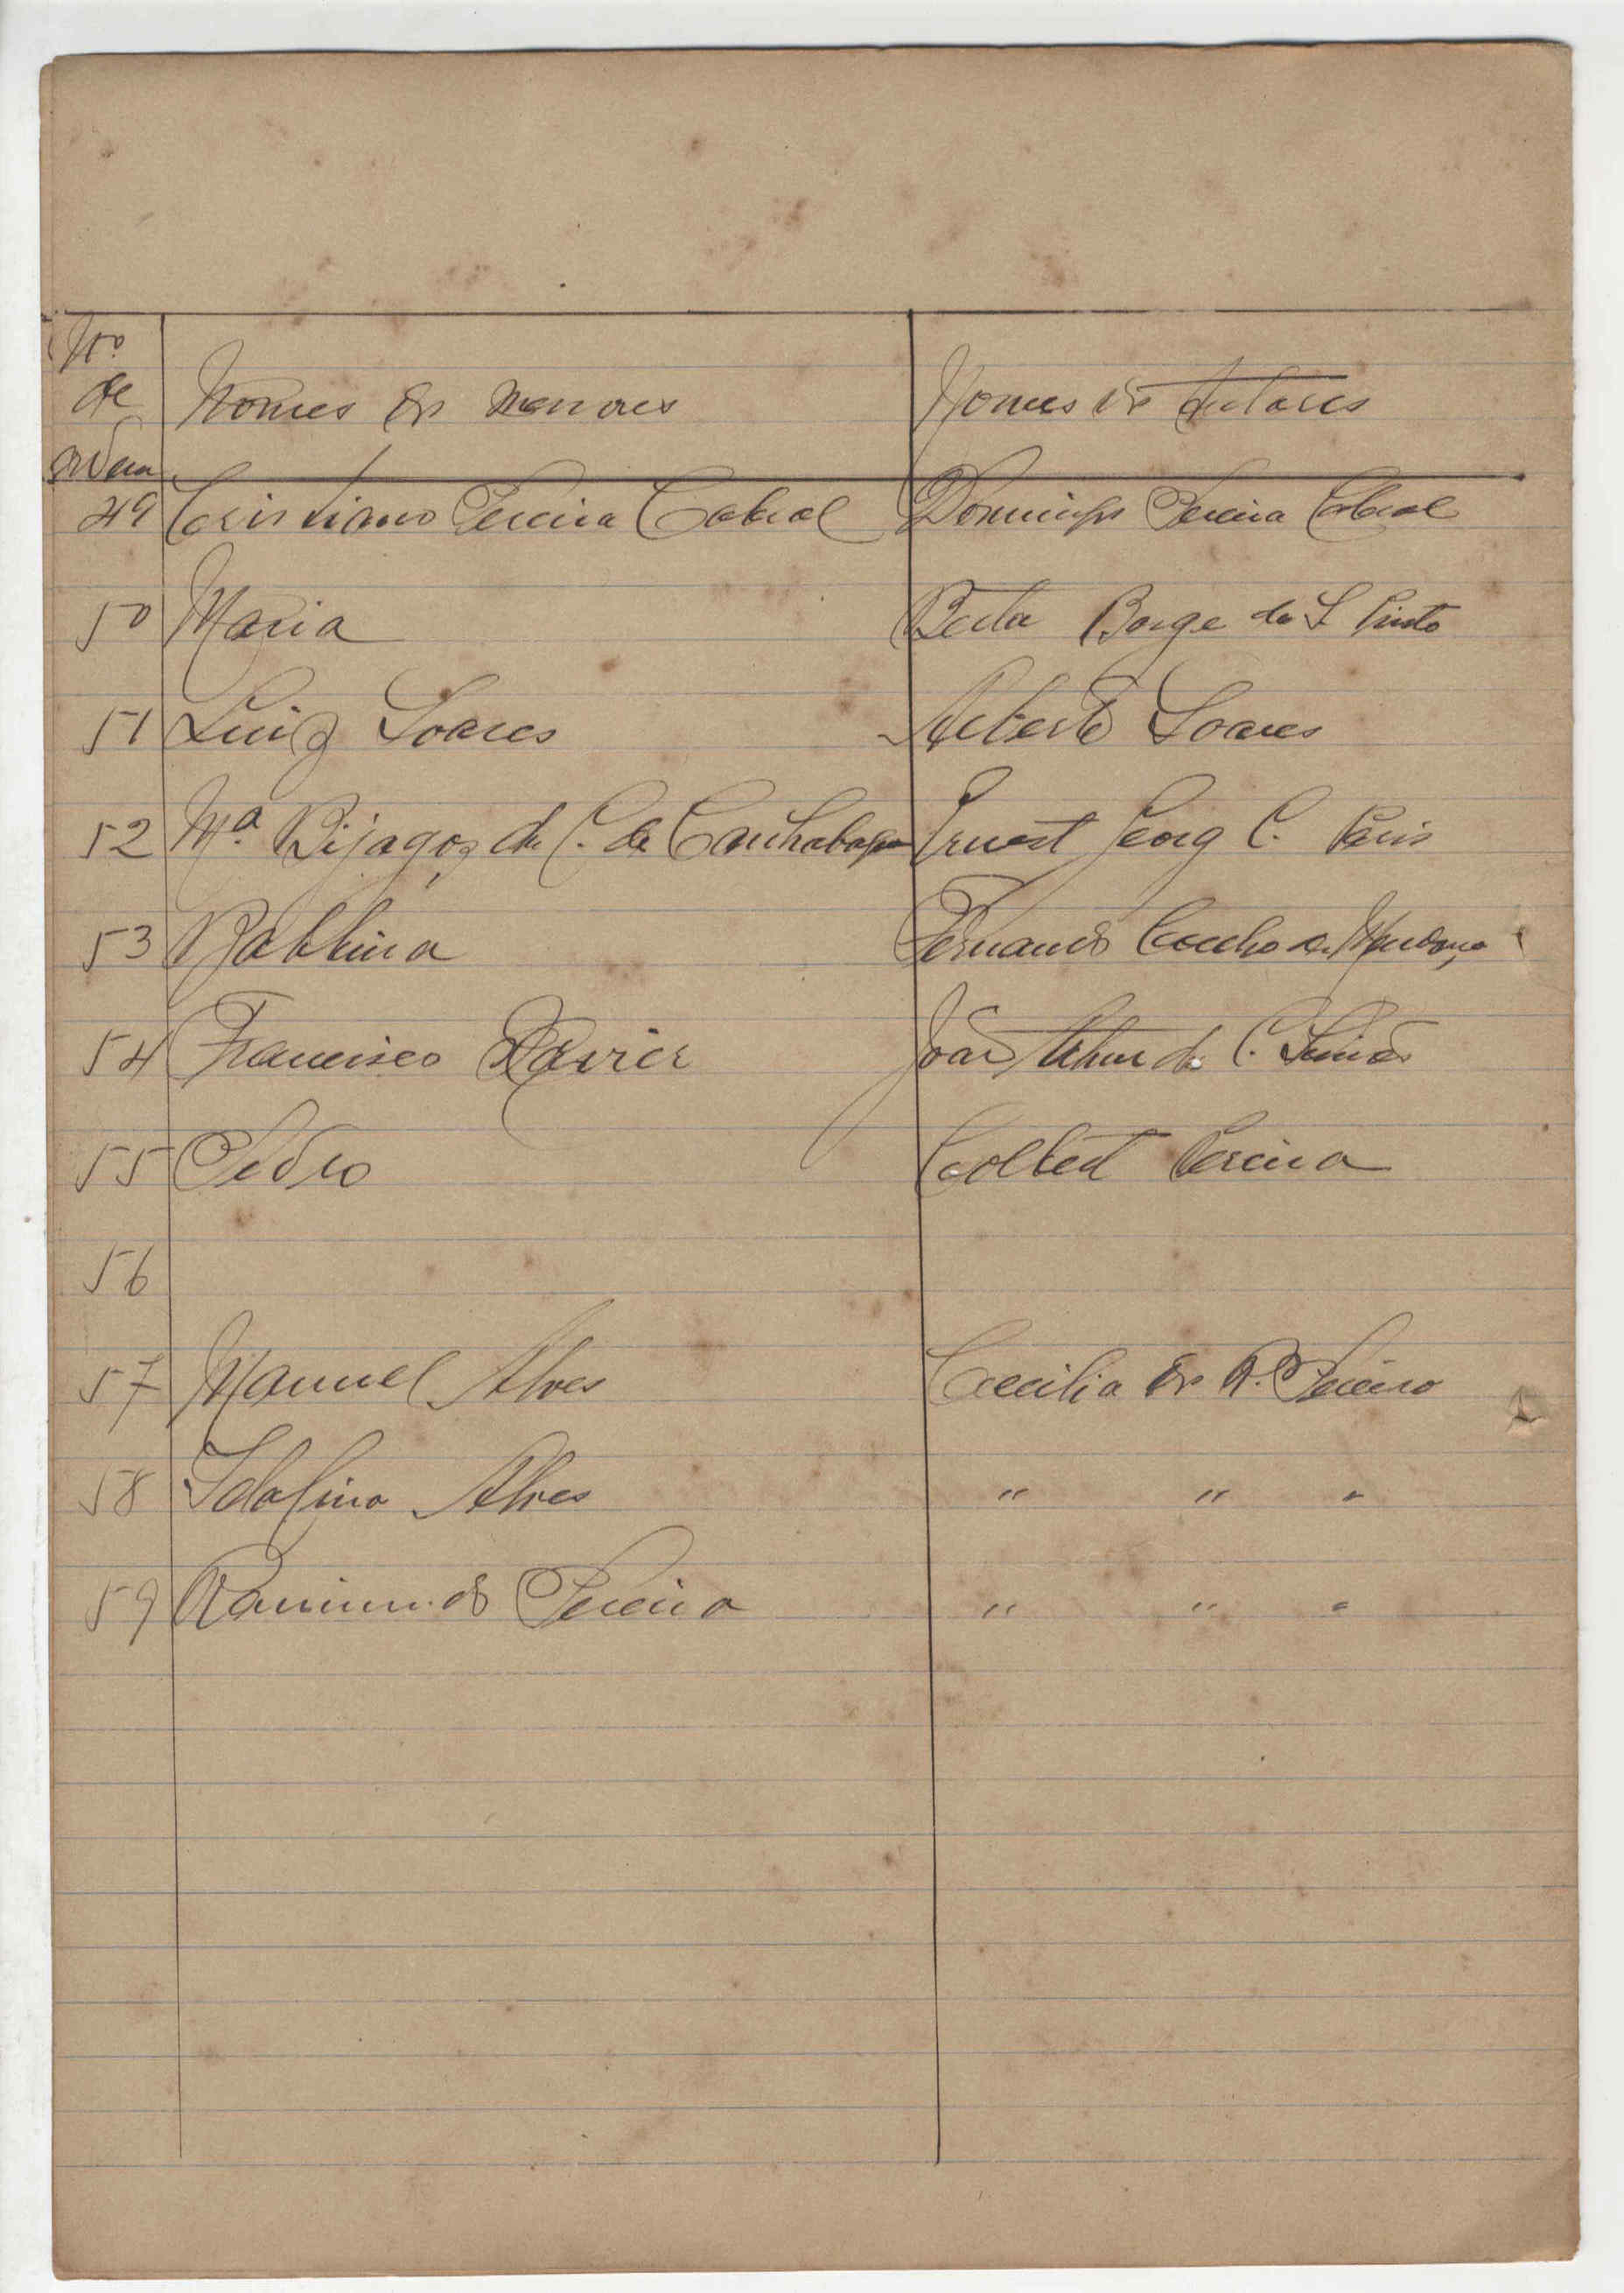 Nº
de
ordem
Nomes dos menores Nomes dos tutores
49 Cristiano Pereira Cabral Domingos Pereira Cabral
50 Maria Berta Borge da S. Pinto
51 Luiz Soares Alberto Soares
52 Mª. Bijagoz de C. de Canhabaque Ernest Georg C. Paris
53 Balbina Fernando Coelho de Mendonça
54 Francisco Xavier João Artur de C.
55 Pedro Colbert Pereira
56
57 Manuel Alves Cecilia do R. Pereira
58 Idalina Alves " " "
59 Raimundo Pereira " " "